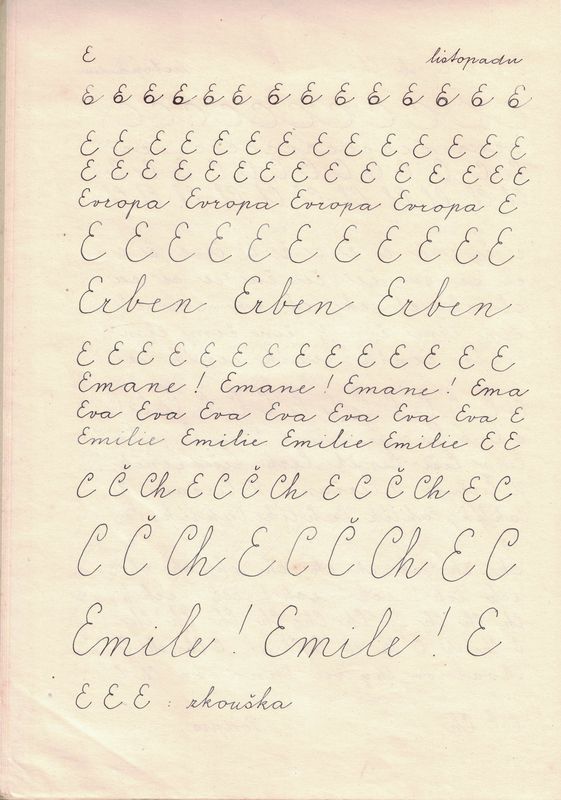 E listopadu
E E E E E E E E E E E E E E
E E E E E E E E E E E E E E
E E E E E E E E E E E E E E E
Evropa Evropa Evropa Evropa E
E E E E E E E E E E E
Erben Erben Erben
E E E E E E E E E E E E E E
Emane ! Emane ! Emane ! Ema
Eva Eva Eva Eva Eva Eva Eva E
Emilie Emilie Emilie Emilie E E
C Č Ch E C Č Ch E C Č Ch E C
C Č Ch E C Č Ch E C
Emile ! Emile ! E
E E E : zkouška